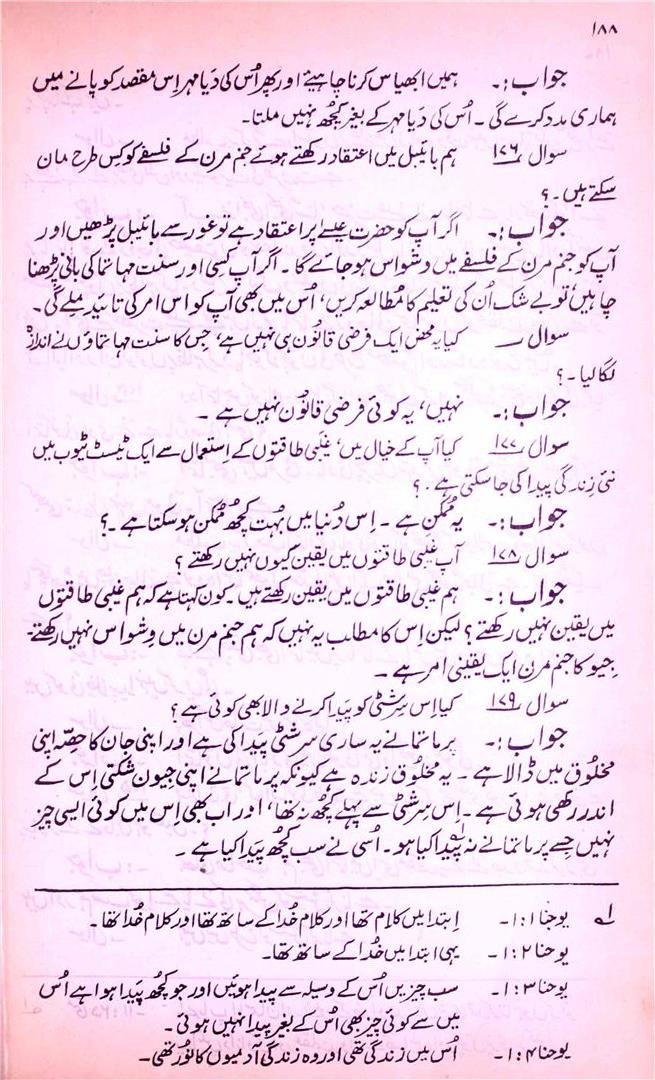 ۱۸۸
جواب :۔ ہمیں ابھیاس کرنا چاہیئے اور پھر اُس کی دَیا مہر اِس مقصد کو پانے میں
ہماری مدد کرے گی ۔ اُس کی دَیا مہر کے بغیر کچھ نہیں ملتا۔
سوال ۱۷۶ ہم بائیبل میں اعتقاد رکھتے ہوئے جنم مرن کے فلسفے کو کس طرح مان
سکتے ہیں ۔؟
جواب :۔ اگر آپ کو حضرت عیسےٰ پر اعتقاد ہے تو غور سے بائیبل پڑھیں اور
آپ کو جنم مرن کے فلسفے میں وشواس ہو جائے گا ۔ اگر آپ کسی اور سنت مہاتما کی بانی پڑھنا
چاہیں، تو بے شک اُن کی تعلیم کا مُطالعہ کریں، اُس میں بھی آپ کو اس امر کی تائید ملے گی۔
سوال ؎ کیا یہ محض ایک فرضی قانون ہی نہیں ہے، جس کا سنت مہاتماؤں نے اندازہ
لگا لیا ۔؟
جواب :۔ نہیں، یہ کوئی فرضی قانُون نہیں ہے ۔
سوال ۱۷۷ کیا آپ کے خیال میں، غیبی طاقتوں کے اِستعمال سے ایک ٹیسٹ ٹیوب میں
نئی زندگی پیدا کی جا سکتی ہے ۔؟
جواب :۔ یہ مُمکن ہے ۔ اِس دُنیا میں بہُت کچھ مُمکن ہو سکتا ہے ۔؟
سوال ۱۷۸ آپ غیبی طاقتوں میں یقین کیوں نہیں رکھتے ؟
جواب :۔ ہم غیبی طاقتوں میں یقین رکھتے ہیں ۔ کون کہتا ہے کہ ہم غیبی طاقتوں
میں یقین نہیں رکھتے ؟ لیکن اِس کا مطلب یہ نہیں کہ ہم جنم مرن میں وِشواس نہیں رکھتے۔
جیو کا جنم مرن ایک یقینی امر ہے ۔
سوال ۱۷۹ کیا اِس سِرشٹی کو پیَدا کرنے والا بھی کوئی ہے ؟
جواب :۔ پرماتما نے یہ ساری سرشٹی پیَدا کی ہے اور اپنی جان کا حِصّہ اپنی
مخلُوق میں ڈالا ہے ۔ یہ مخلُوق زندہ ہے کیونکہ پرماتما نے اپنی جیون شکتی اِس کے
اندر رکھی ہوئی ہے ۔ اِس سِرشٹی سے پہلے کچھ نہ تھا، اور اب بھی اِس میں کوئی ایسی چیز
نہیں جِسے پرماتما نے نہ پیدا کیا ہو۔ اُسی نے سب کچھ پیَدا کیا ہے ۔
۱؎ یوحنا ۱:۱۔ اِبتدا میں کلام تھا اور کلام خُدا کے ساتھ تھا اور کلام خُدا تھا ۔
یوحنا ۱:۲۔ یہی ابتدا میں خُدا کے ساتھ تھا۔
یوحنا ۱:۳۔ سب چیزیں اُس کے وسیلہ سے پیدا ہوئیں اور جو کچھ پَیدا ہوا ہے اُس
میں سے کوئی چیز بھی اُس کے بغیر پَیدا نہیں ہوئی ۔
یوحنا ۱:۴۔ اُس میں زندگی تھی اور وہ زندگی آدمیوں کا نُور تھی۔